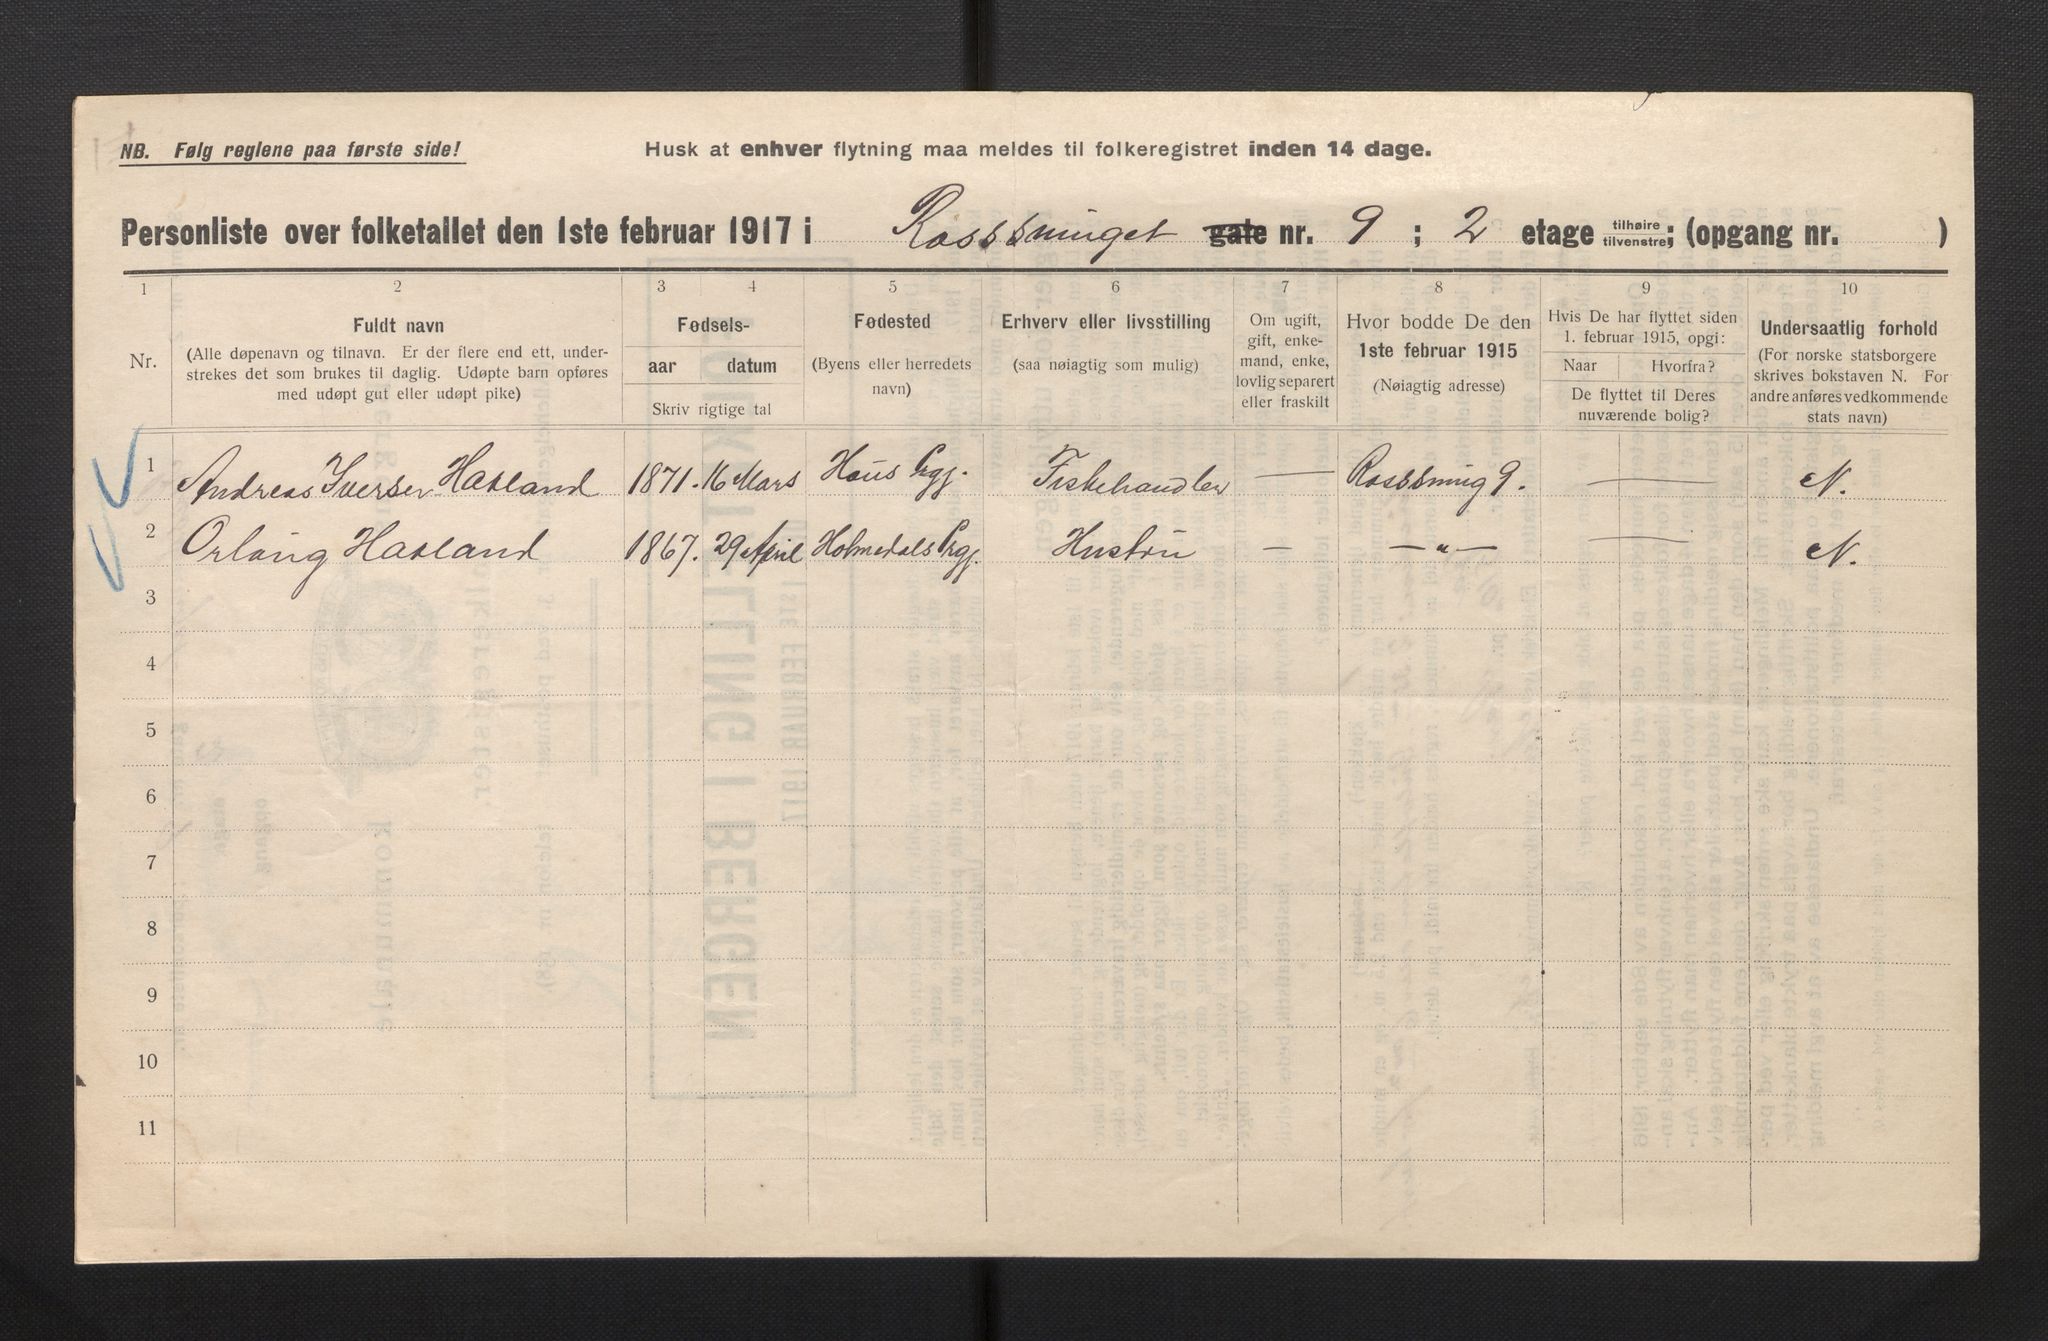 NB. Følg reglene paa første side!
Husk at enhver flytning maa meldes til folkeregistret inden 14 dage.
Personliste over folketallet den 1ste februar 1917 i Rosssminget gate nr. 9 ; 2 etage tilhøire tilvenstre; (opgang nr. )
1 2 3 4 5 6 7 8 9 10
Nr.
Fuldt navn
(Alle døpenavn og tilnavn. Er der flere end ett, under-
strekes det som brukes til daglig. Udøpte barn opføres
med udøpt gut eller udøpt pike)
Fødsels-
aar datum
Skriv rigtige tal
Fødested
(Byens eller herredets
navn)
Erhverv eller livsstilling
(saa nøiagtig som mulig)
Om ugift,
gift, enke-
mand, enke,
lovlig separert
eller fraskilt
Hvor bodde De den
1ste februar 1915
(Nøiagtig adresse)
Hvis De har flyttet siden
1. februar 1915, opgi:
Naar Hvorfra?
De flyttet til Deres
nuværende bolig?
Undersaatlig forhold
(For norske statsborgere
skrives bokstaven N. For
andre anføres vedkommende
stats navn)
1 Andreas Iversen Hakland 1871. 16 Mars Haus Prgj. Fiskehandler — Rosssming 9. — N.
2 Orlaug Hakland 1867. 29 April Holmedals Prgj. Hustru — —"— — N.
3
4
5
6
7
8
9
10
11